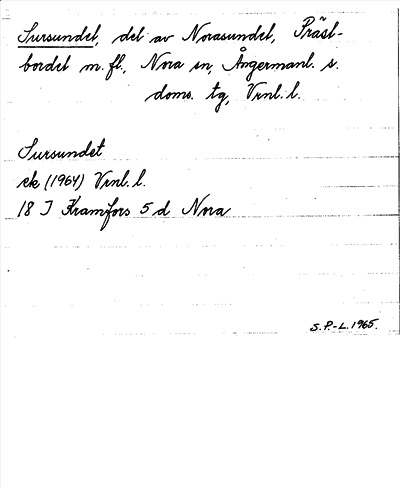 Sursundet, del av Norasundet, Präst-
bordet m.fl., Nora sn, Ångermanl. s.
doms. tg, Vrnl. l.
Sursundet
ek (1964) Vrnl. l.
18 I Kramfors 5 d Nora
S.P.-L. 1965.